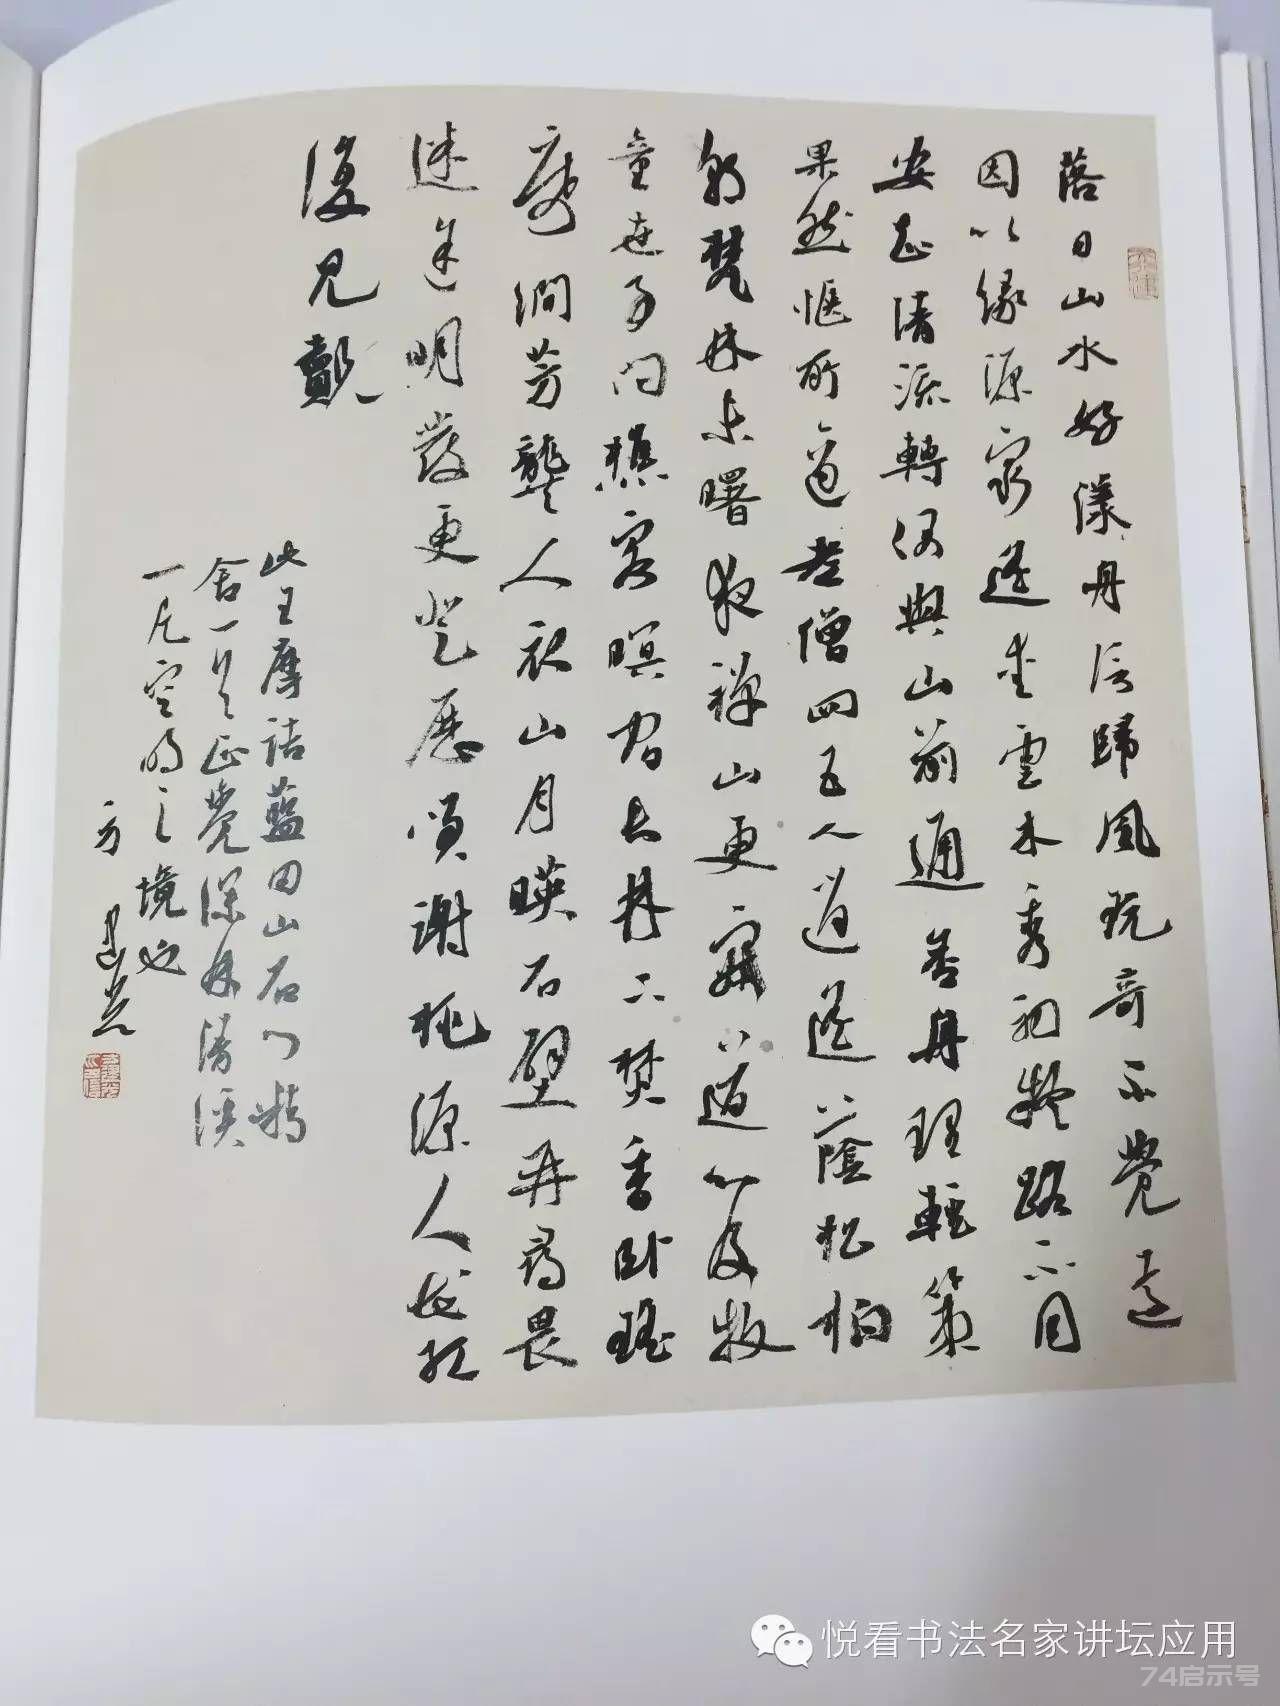 落日山水好漾舟信歸風玩奇不覺遠
因以緣源窮遥愛雲木秀初疑路不同
安知清流轉偶與山前通舍舟理輕策
果然愜所適老僧四五人逍遥蔭松柏
朝梵林未曙夜禪山更寂道心及牧
童世事問樵客暝宿長林下焚香卧瑤
席澗芳襲人衣山月映石壁再尋畏
迷途明發更登歷笑謝桃源人花紅
復見覿
此王摩詰藍田山石門精
舍一首正覺深林清溪
一片空明之境也
方建光
悦看书法名家讲坛应用
74启示号